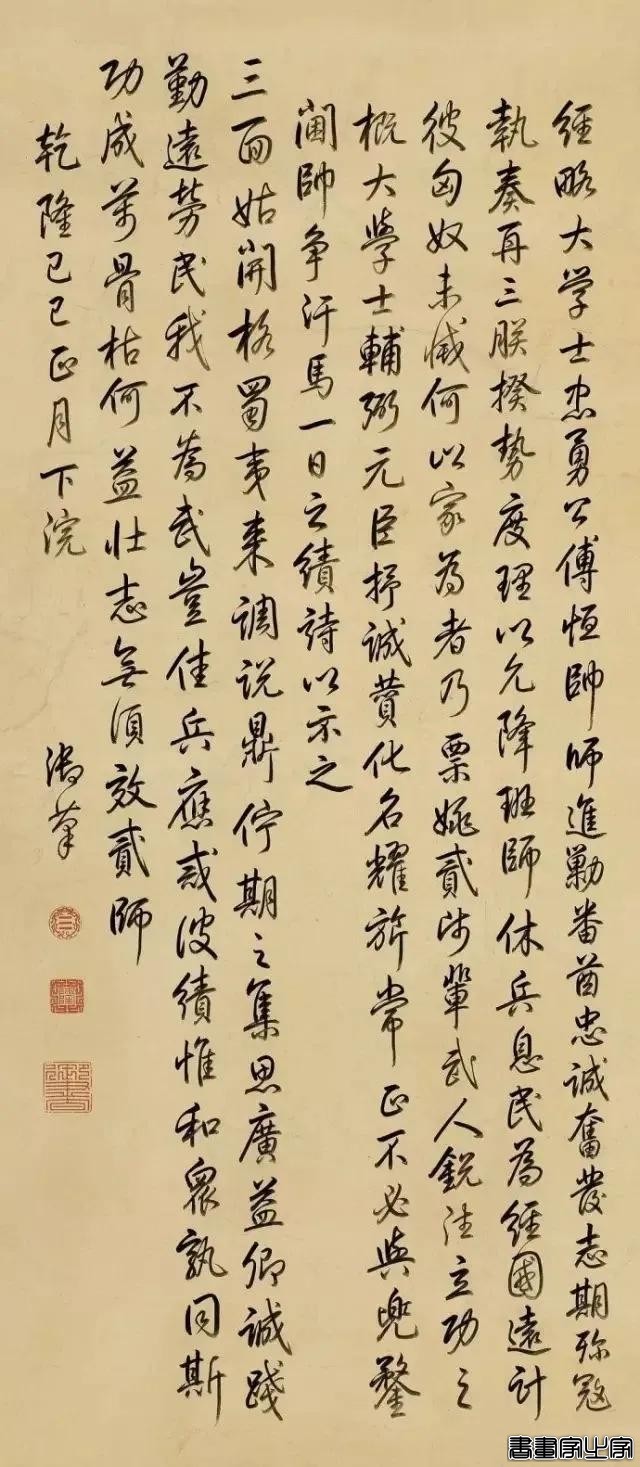 經略大学士忠勇公傅恒帥師進勦番酋忠誠奮發志期殄寇
執奏再三朕揆勢度理以允降班師休兵息民為經國遠計
彼匈奴未滅何以家為者乃票姚貳師輩武人銳注立功之
概大學士輔弼元臣抒誠贊化名耀旂常正不必與兜鍪
閫帥爭汗馬一日之績詩以示之
三面姑開格蜀夷来調說鼎佇期之集思廣益卿誠踐
勤遠勞民我不為武豈佳兵應戒彼績惟和衆孰同斯
功成萬骨枯何益壯志無須效貳師
乾隆己巳正月下浣
御筆
書畫家必字